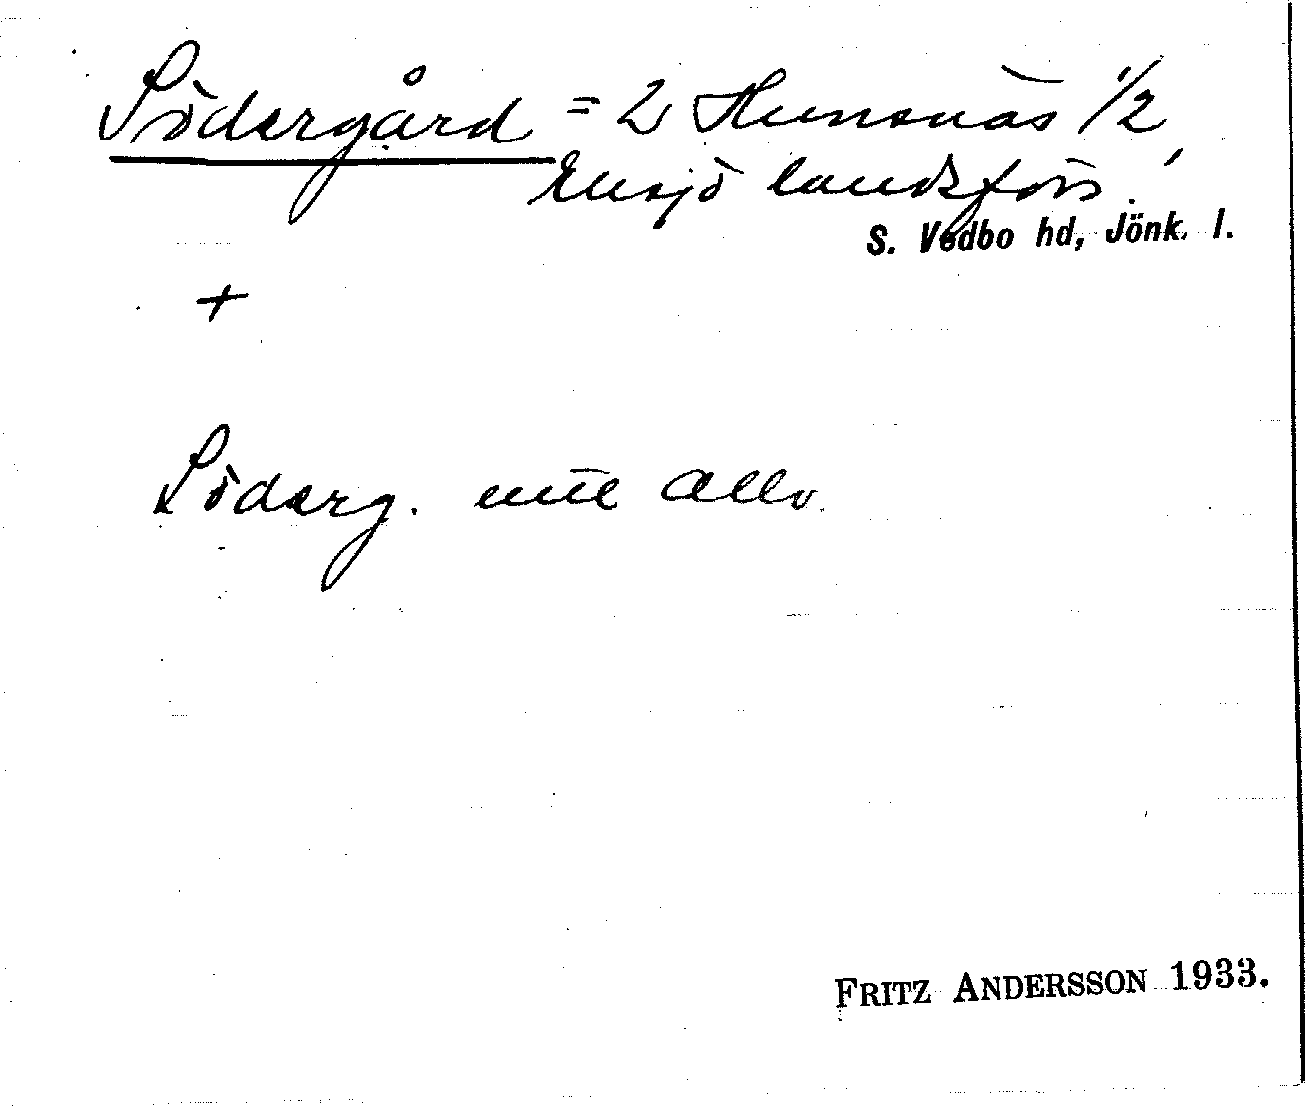 Södergård = 2 Hunsnäs 1/2,
Eksjö landsförs.
S. Vedbo hd, Jönk. l.
+
Söderg. mtl allo.
FRITZ ANDERSSON 1933.